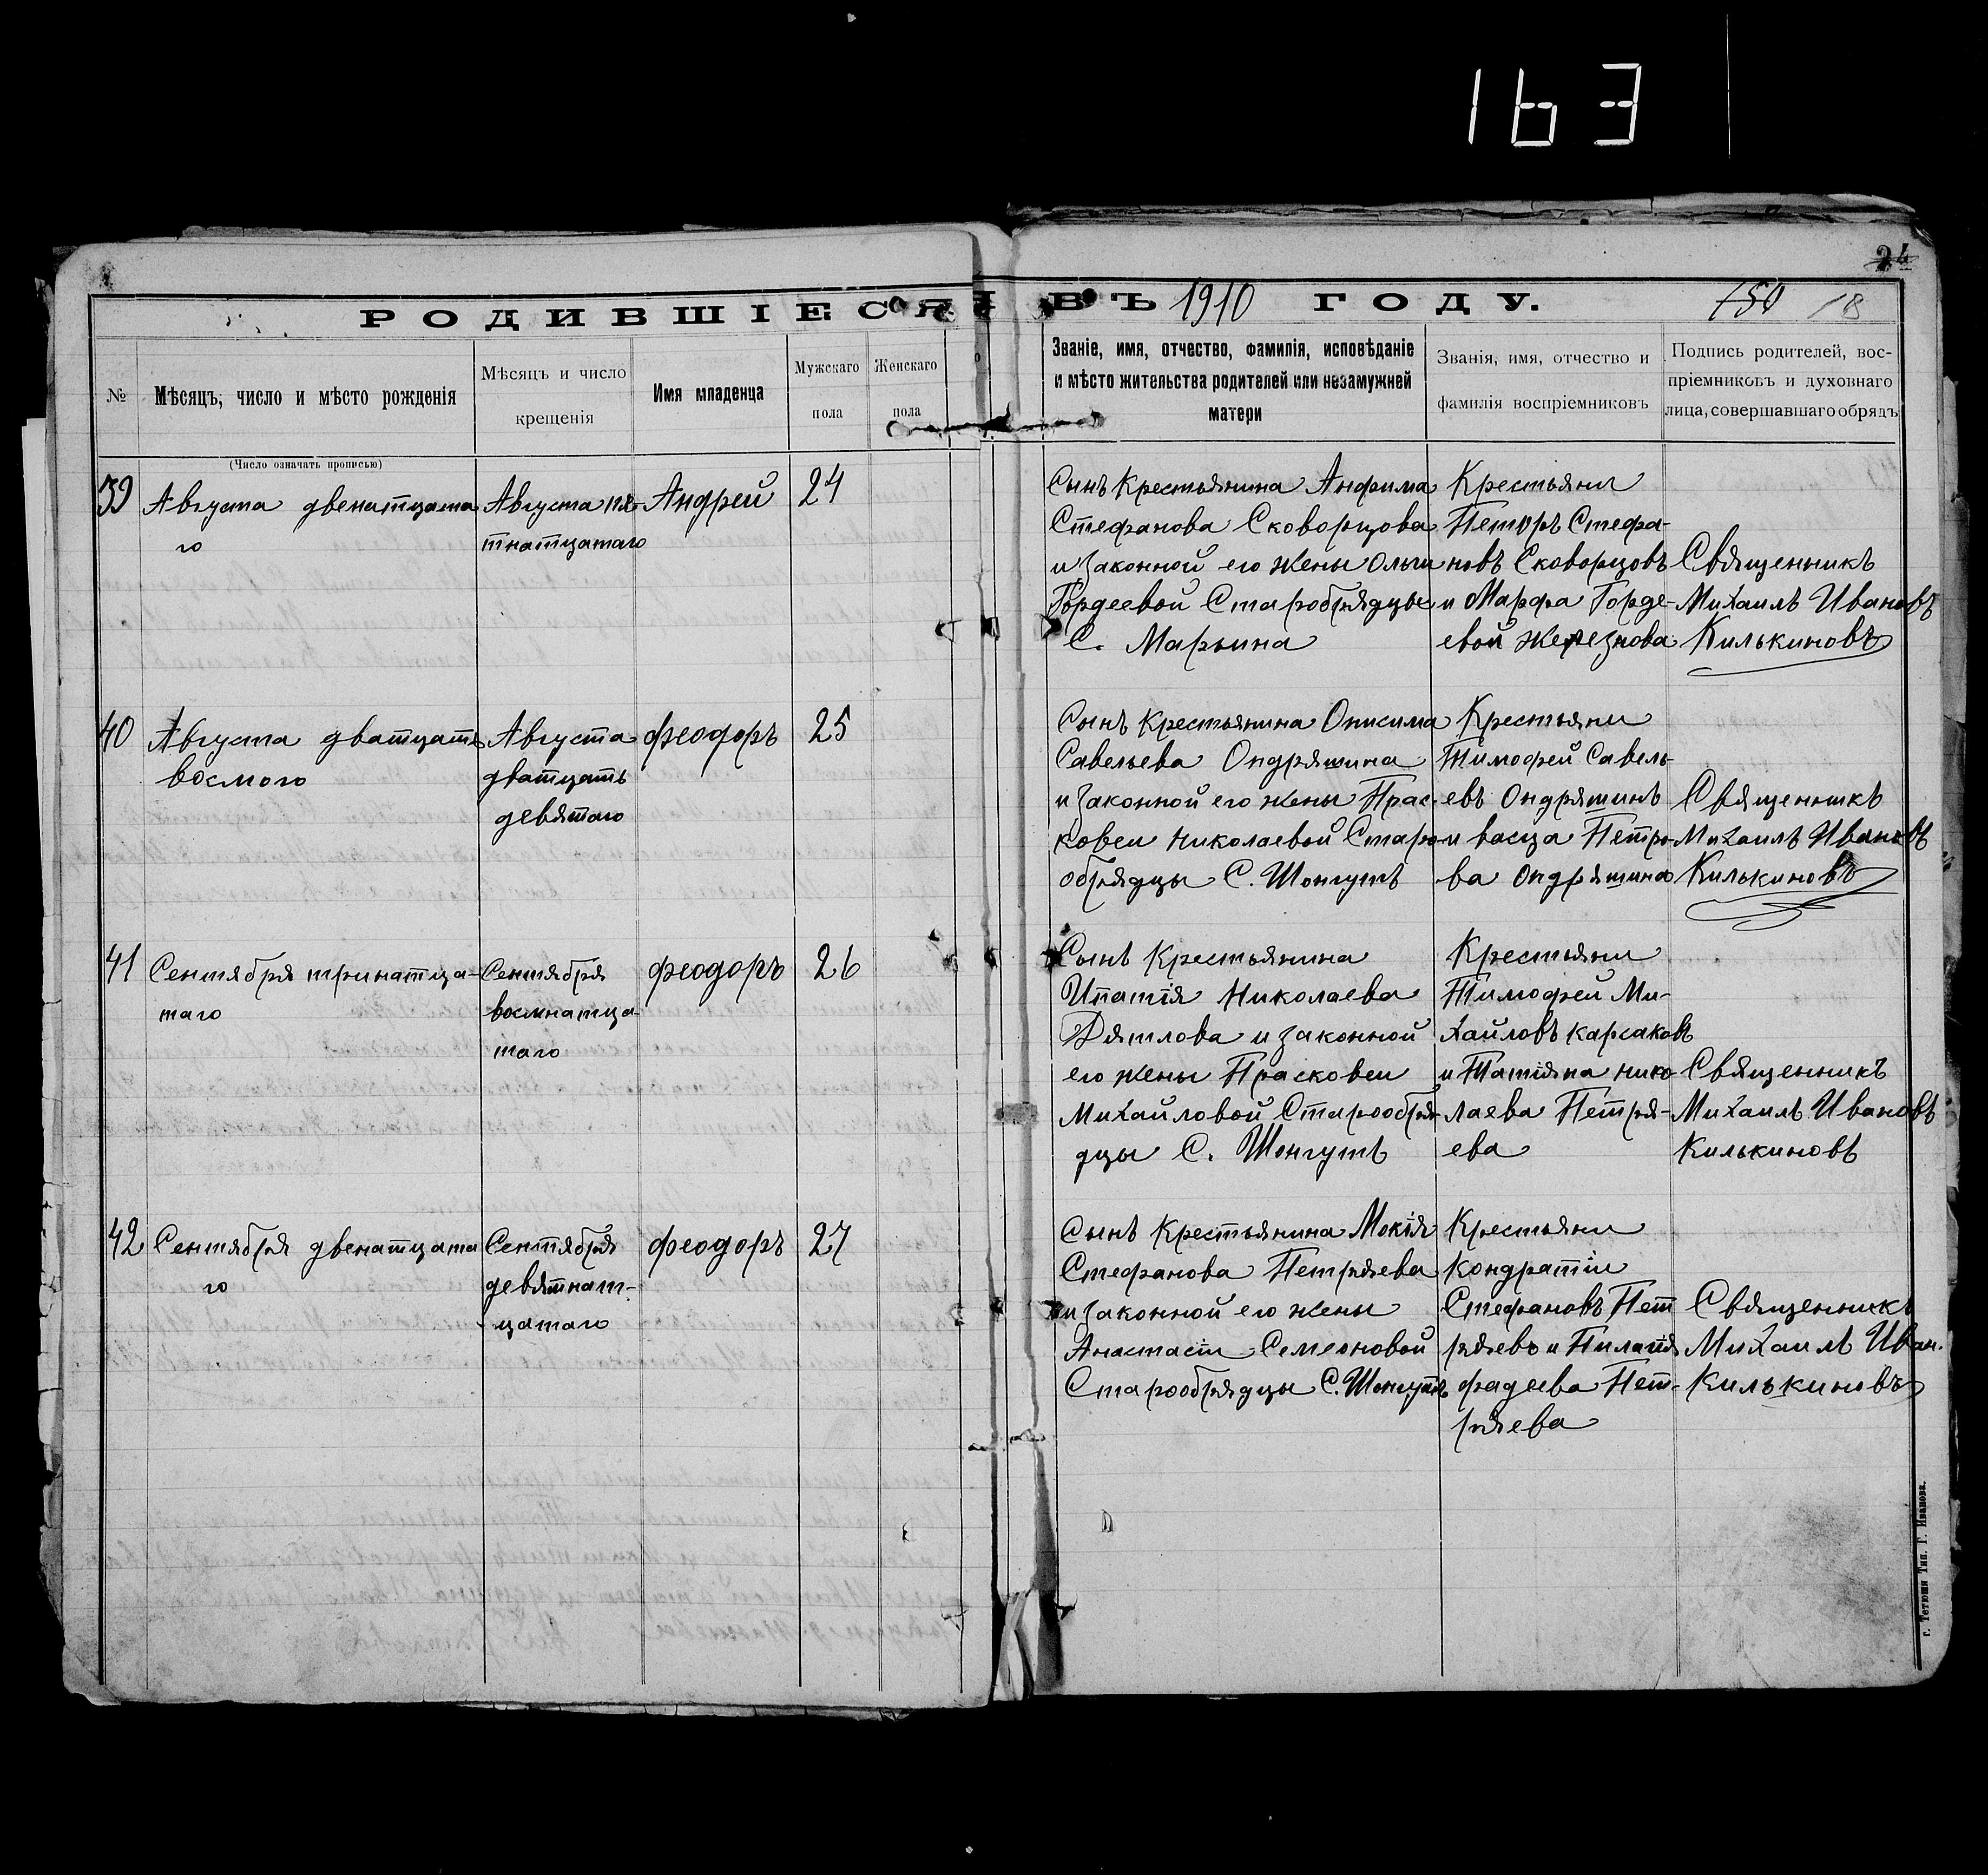 163
24
РОДИВШІЕСЯ ВЪ 1910 ГОДУ.
150 18
№
Мѣсяцъ, число и мѣсто рожденія
Мѣсяцъ и число
крещенія
Имя младенца
Мужскаго
пола
Женскаго
пола
Званіе, имя, отчество, фамилія, исповѣданіе
и мѣсто жительства родителей или незамужней
матери
Званія, имя, отчество и
фамилія воспріемниковъ
Подпись родителей, вос-
пріемниковъ и духовнаго
лица, совершавшаго обрядъ
(Число означать прописью)
39
Августа двенатцата
го
Августа пя-
тнатцатаго
Андрей
24
Сынъ Крестьянина Анфима
Стефанова Скворцова
и законной его жены Ольги
Гордеевой Старобрядцы
С. Марьина
Крестьяни
Петоръ Стефа-
новъ Сковорцовъ
и Марфа Горде-
евой Железнова
Священникъ
Михаилъ Ивановъ
Килькиновъ
40
Августа дватцать
восмого
Августа
дватцать
девятаго
феодоръ
25
Сынъ Крестьянина Онисима
Савельева Ондряшина
и законной его жены Прас-
ковеи Николаевой Старо-
обрядцы С. Шонгутъ
Крестьяни
Тимофей Савель-
евъ Ондряшинъ
и васца Петро-
ва Ондряшина
Священникъ
Михаилъ Ивановъ
Килькиновъ
41
Сентября тринатца-
таго
Сентября
восмнатца-
таго
феодоръ
26
Сынъ Крестьянина
Ипатія Николаева
Дятлова и законной
его жены Прасковеи
Михайловой Старообря-
дцы С. Шонгутъ
Крестьяни
Тимофей Ми-
хайловъ карсаковъ
и Татіяна нико-
лаева Петря-
ева
Священникъ
Михаилъ Ивановъ
Килькиновъ
42
Сентября двенатцата
го
Сентября
девятнат-
цатаго
феодоръ
27
Сынъ Крестьянина Мокія
Стефанова Петряева
и законной его жены
Анастасіи Семеоновой
Старообрядцы С. Шонгутъ
Крестьяни
Кондратіи
Стефановъ Пет
ряевъ и Пилагія
фадеева Пет-
ряева
Священникъ
Михаилъ Иван.
Килькиновъ
г. Тетюши Тип. Г. Иванова.